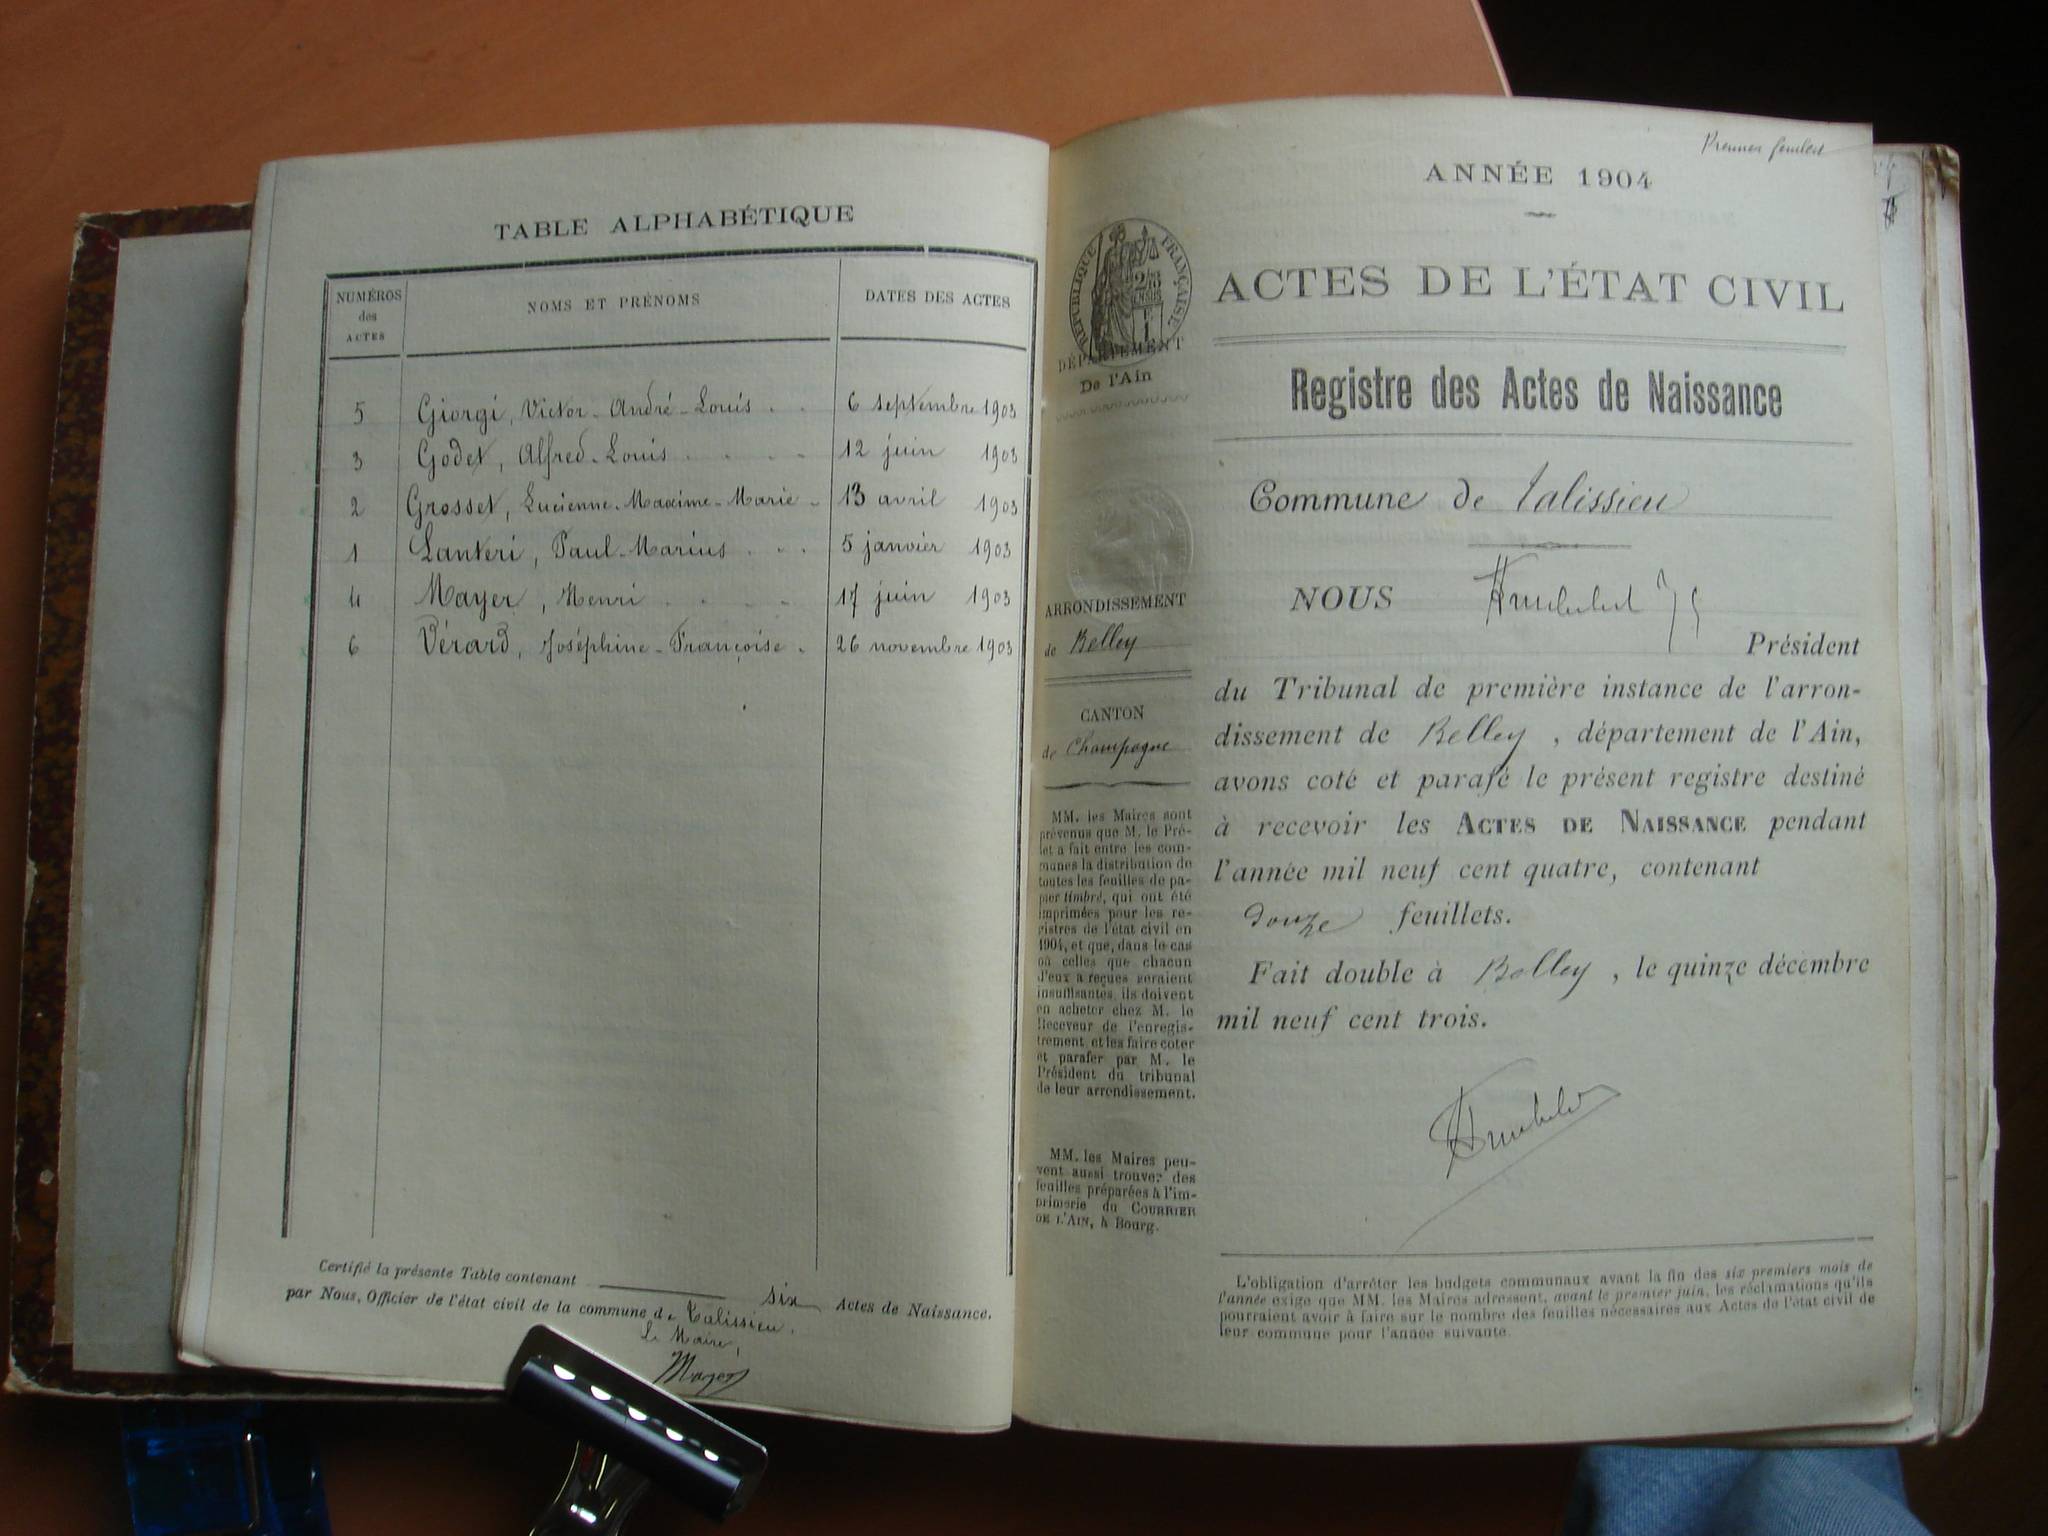 TABLE ALPHABÉTIQUE
NUMÉROS des ACTES
NOMS ET PRÉNOMS
DATES DES ACTES
5 Giorgi, Victor-André-Louis 6 septembre 1903
3 Godet, Alfred-Louis 12 juin 1903
2 Grosset, Lucienne-Maxime-Marie 13 avril 1903
1 Lanteri, Paul-Marius 5 janvier 1903
4 Mayer, Henri 17 juin 1903
6 Vérard, Joséphine-Françoise 26 novembre 1903
Certifié la présente Table contenant six Actes de Naissance.
par Nous, Officier de l'état civil de la commune de Talissieu.
Le Maire,
Mayer
Premier feuillet
ANNÉE 1904
RÉPUBLIQUE FRANÇAISE
DÉPARTEMENT
De l'Ain
ARRONDISSEMENT
de Belley
CANTON
de Champagne
MM. les Maires sont
prévenus que M. le Pré-
fet a fait entre les com-
munes la distribution de
toutes les feuilles de pa-
pier timbré, qui ont été
imprimées pour les re-
gistres de l'état civil en
1904, et que, dans le cas
où celles que chacun
d'eux a reçues seraient
insuffisantes, ils doivent
en acheter chez M. le
Receveur de l'enregis-
trement, et les faire coter
et parafer par M. le
Président du tribunal
de leur arrondissement.
MM. les Maires peu-
vent aussi trouver des
feuilles préparées à l'im-
primerie du COURRIER
DE L'AIN, à Bourg.
ACTES DE L'ÉTAT CIVIL
Registre des Actes de Naissance
Commune de Talissieu
NOUS
Président
du Tribunal de première instance de l'arron-
dissement de Belley, département de l'Ain,
avons coté et parafé le présent registre destiné
à recevoir les ACTES DE NAISSANCE pendant
l'année mil neuf cent quatre, contenant
douze feuillets.
Fait double à Belley, le quinze décembre
mil neuf cent trois.
L'obligation d'arrêter les budgets communaux avant la fin des six premiers mois de
l'année exige que MM. les Maires adressent, avant le premier juin, les réclamations qu'ils
pourraient avoir à faire sur le nombre des feuilles nécessaires aux Actes de l'état civil de
leur commune pour l'année suivante.